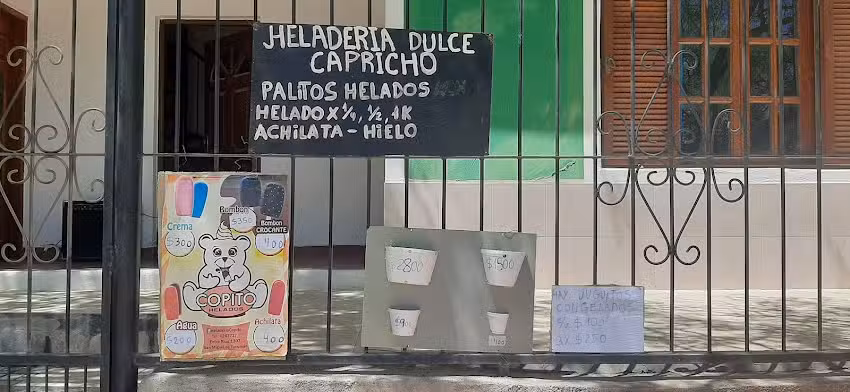 HELADERIA DULCE
CAPRICHO
PALITOS HELADOS
HELADO X ¼, ½, 1K
ACHILATA - HIELO
Bombon
$350
Crema
$300
Bombon
CROCANTE
400
COPITO
HELADOS
Agua
$200
Achilata
400
2800
$1500
$900
JUGUITOS
CONGELADOS